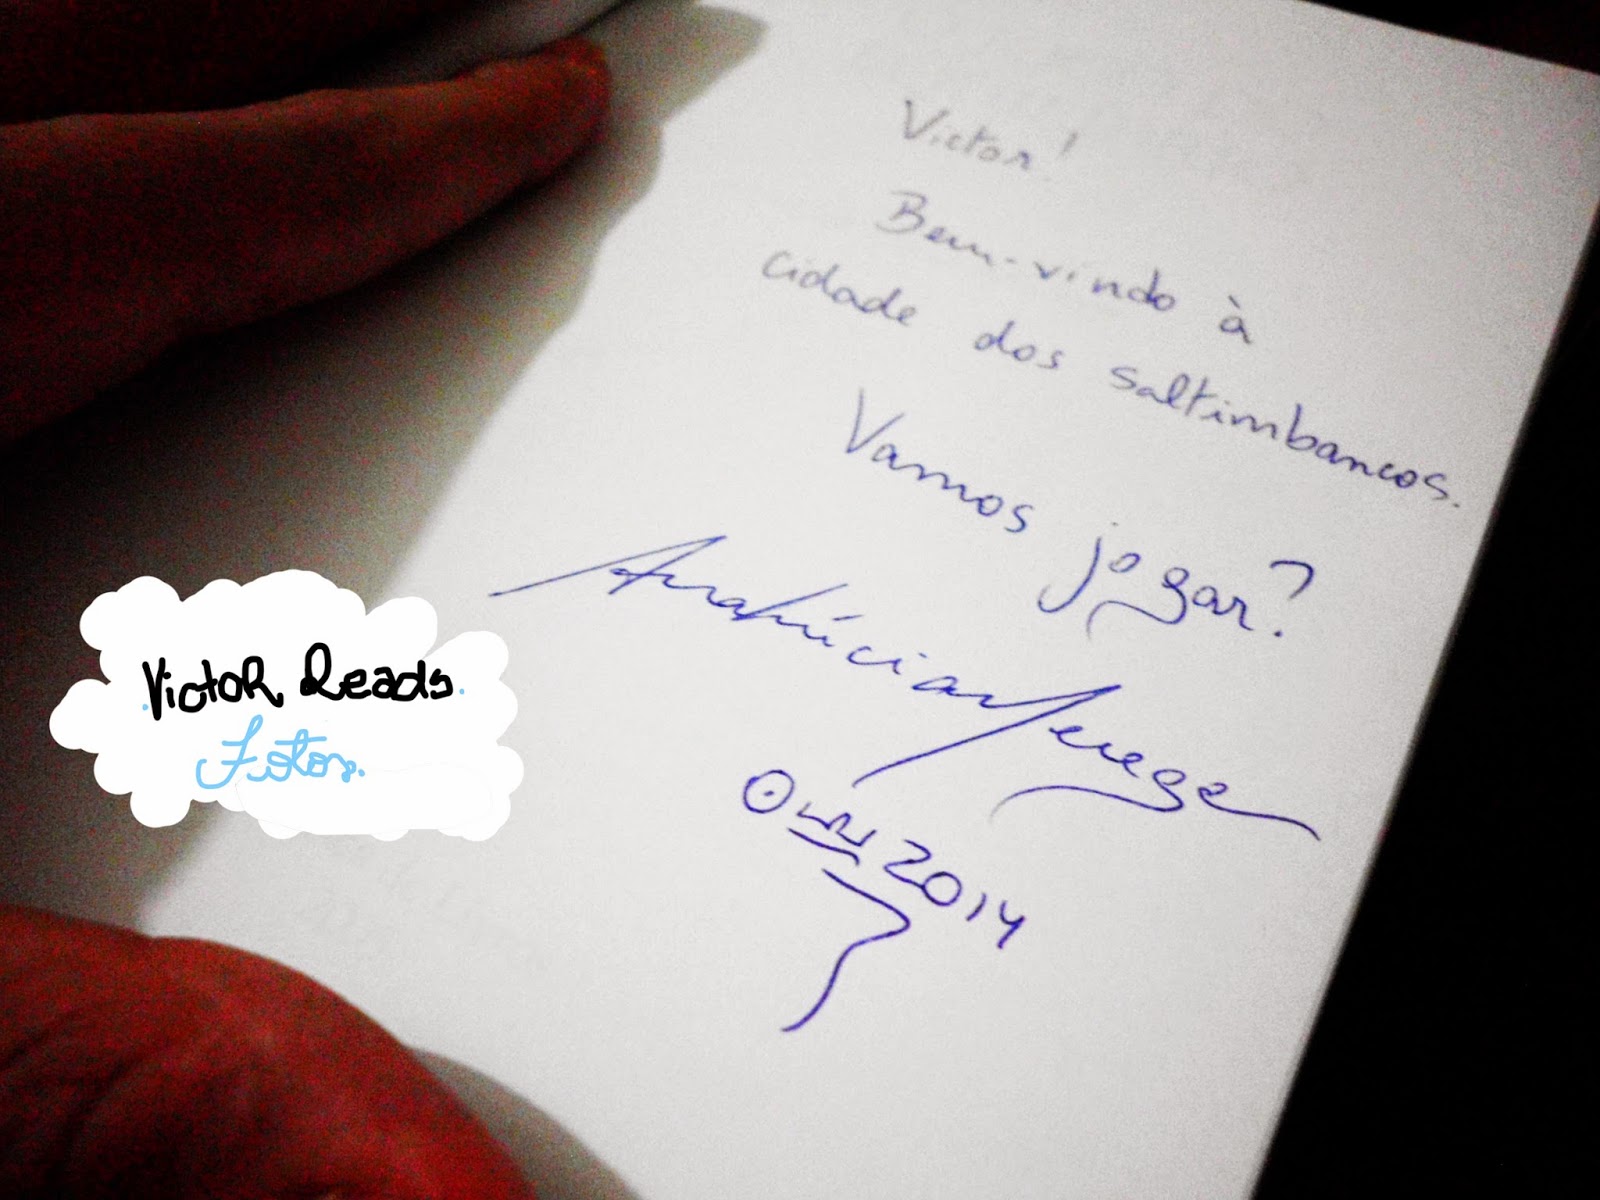 Victor!
Bem-vindo à
cidade dos saltimbancos.
Vamos jogar?
Ana Lúcia Merege
Out 2014
Victor Reads
Fotos.